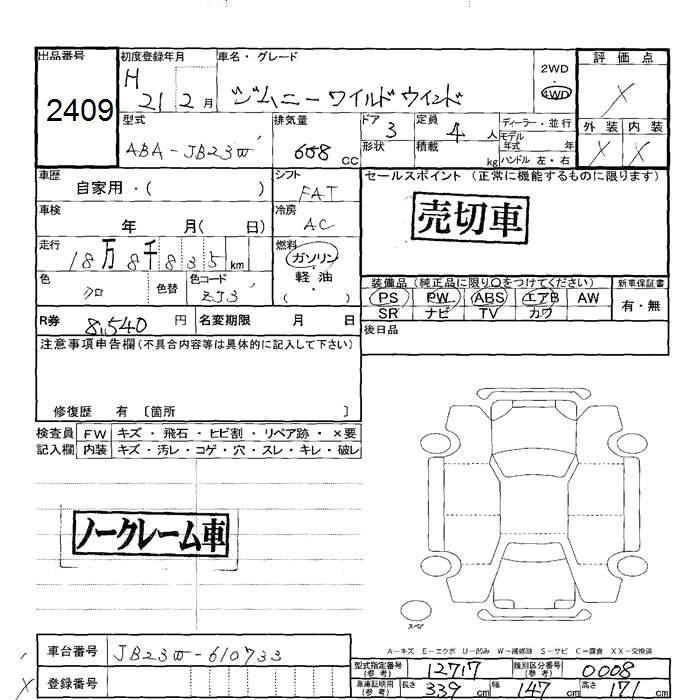 出品番号 初度登録年月 車名・グレード 評価点
2409
H 21 2月 ジムニー ワイルドウインド
2WD
4WD
X
型式 排気量 ドア 3 定員 4 人 ディーラー・並行 外装 内装
ABA-JB23W 658 CC 形状 積載 kg モデル年式 年 X X
ハンドル 左・右
車歴 自家用・( ) シフト FAT セールスポイント (正常に機能するものに限ります)
車検 年 月( 日) 冷房 AC
売切車
走行 18万8千835km 燃料 ガソリン 軽油 ( )
色 クロ 色替 色コード ZJ3
装備品(純正品に限り○をつけてください) 新車保証書
PS PW ABS エアB AW 有・無
SR ナビ TV カワ
R券 8,540 円 名変期限 月 日 後日品
注意事項申告欄(不具合内容等は具体的に記入して下さい)
修復歴 有 〔箇所 〕
検査員 FW キズ・飛石・ヒビ割・リペア跡・×要
記入欄 内装 キズ・汚レ・コゲ・穴・スレ・キレ・破レ
ノークレーム車
スペア
A-キズ E-エクボ U-凹み W-補修跡 S-サビ C-腐食 XX-交換済
車台番号 JB23W-610733
型式指定番号(参考) 12717 類別区分番号(参考) 0008
X 登録番号
車庫証明用(参考) 長さ 339 cm 幅 147 cm 高さ 171 cm